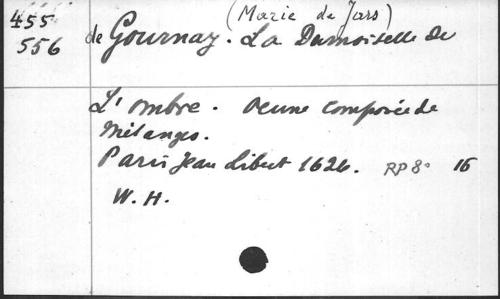 455
(Marie de Jars)
556 de Gournay. La Damoiselle de
L'ombre. Oeuvre composée de
Mélanges.
Paris Jean Libert 1626. RP 8° 16
W. H.